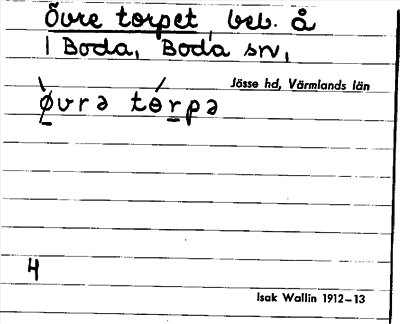 Övre torpet, beb. å
1 Boda, Boda sn,
Jösse hd, Värmlands län
øvrə tɵrpə
4
Isak Wallin 1912–13